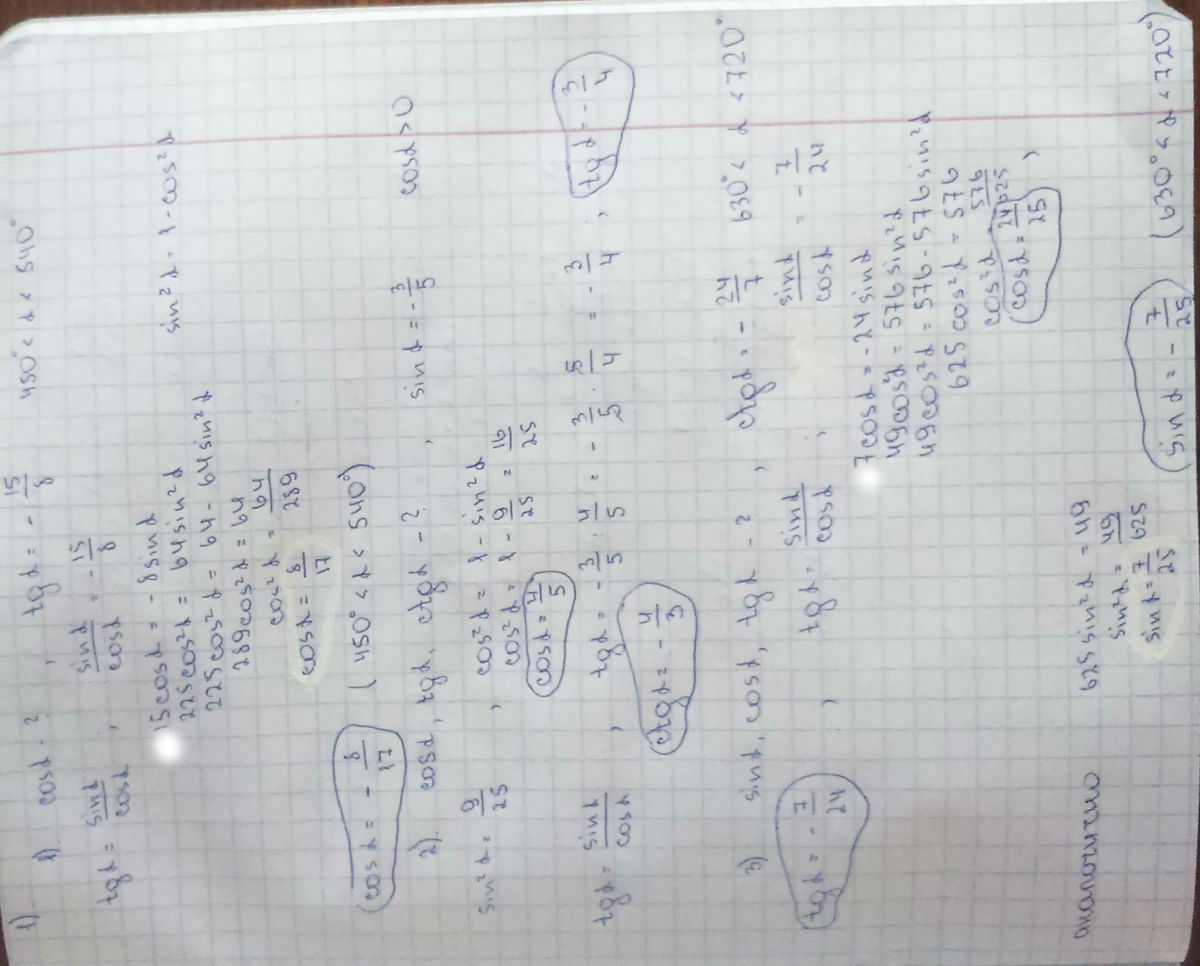 1)
1) cosα - ? , tgα = - 15/8 450° < α < 540°
tgα = sinα/cosα , sinα/cosα = - 15/8
15cosα = - 8sinα sin²α = 1 - cos²α
225cos²α = 64sin²α
225cos²α = 64 - 64sin²α
289cos²α = 64
cos²α = 64/289
cosα = 8/17
cosα = - 8/17 (450° < α < 540°)
2) cosα, tgα, ctgα - ? , sinα = - 3/5 cosα > 0
sin²α = 9/25 , cos²α = 1 - sin²α
cos²α = 1 - 9/25 = 16/25
cosα = 4/5
tgα = sinα/cosα , tgα = - 3/5 : 4/5 = - 3/5 · 5/4 = - 3/4 ; tgα = - 3/4
ctgα = - 4/3
3) sinα, cosα, tgα - ? , ctgα = - 24/7 630° < α < 720°
tgα = - 7/24 , tgα = sinα/cosα , sinα/cosα = - 7/24
7cosα = - 24sinα
49cos²α = 576sin²α
49cos²α = 576 - 576sin²α
625cos²α = 576
cos²α 576/625
cosα = 24/25 ,
аналогично 625sin²α = 49
sin²α = 49/625
sinα = 7/25
sinα = - 7/25 (630° < α < 720°)